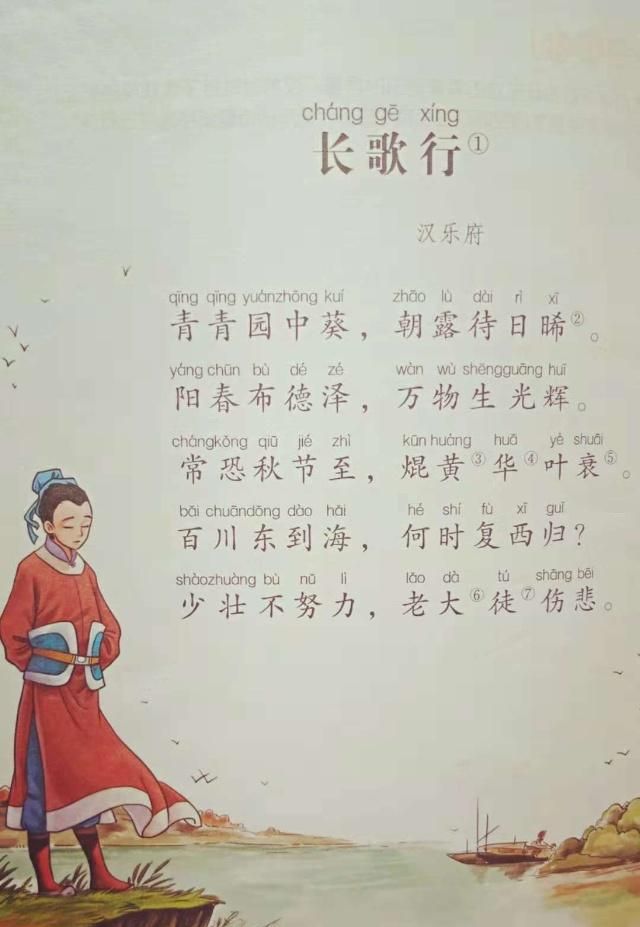 cháng gē xíng
长歌行①
汉乐府
qīng qīng yuánzhōng kuí zhāo lù dài rì xī
青青园中葵，朝露待日晞②。
yáng chūn bù dé zé wàn wù shēngguāng huī
阳春布德泽，万物生光辉。
chángkǒng qiū jié zhì kūn huáng huā yè shuāi
常恐秋节至，焜黄③华④叶衰⑤。
bǎi chuāndōng dào hǎi hé shí fù xī guī
百川东到海，何时复西归？
shàozhuàng bù nǔ lì lǎo dà tú shāng bēi
少壮不努力，老大⑥徒⑦伤悲。